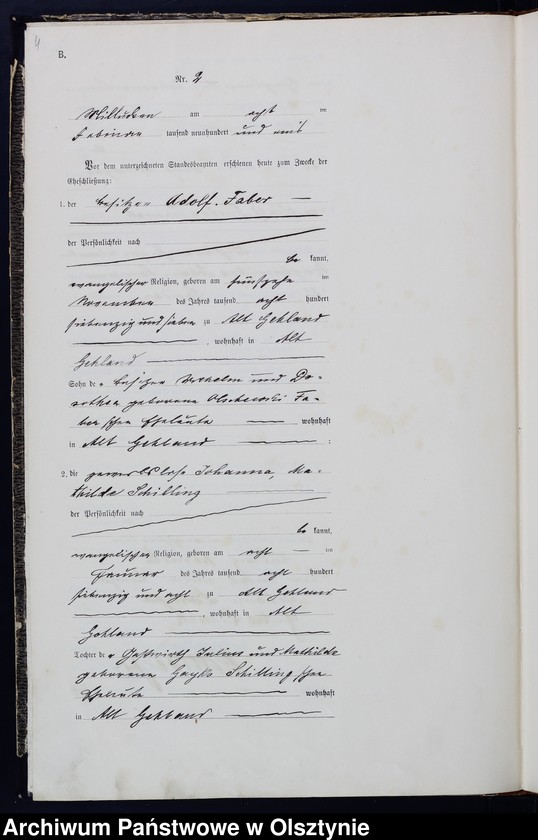 4
B.
Nr. 2
am acht im
Februar tausend neunhundert und
Vor dem unterzeichneten Standesbeamten erschienen heute zum Zwecke der
Eheschließung:
1. der Besitzer Adolf Faber
der Persönlichkeit nach
be kannt,
evangelischer Religion, geboren am fünfzehn im
November des Jahres tausend acht hundert
siebenzig und sieben zu Alt Gehland
, wohnhaft in Alt
Gehland
Sohn der Besitzer und Do-
rothea geborene Fa-
ber'schen Eheleute wohnhaft
in Alt Gehland :
2. die gewerblose Johanna, Ma-
thilde Schilling
der Persönlichkeit nach
be kannt,
evangelischer Religion, geboren am acht im
Januar des Jahres tausend acht hundert
siebenzig und acht zu Alt Gehland
, wohnhaft in Alt
Gehland
Tochter der Gastwirth Julius und Mathilde
geborene Schilling'schen
Eheleute wohnhaft
in Alt Gehland
Archiwum Państwowe w Olsztynie